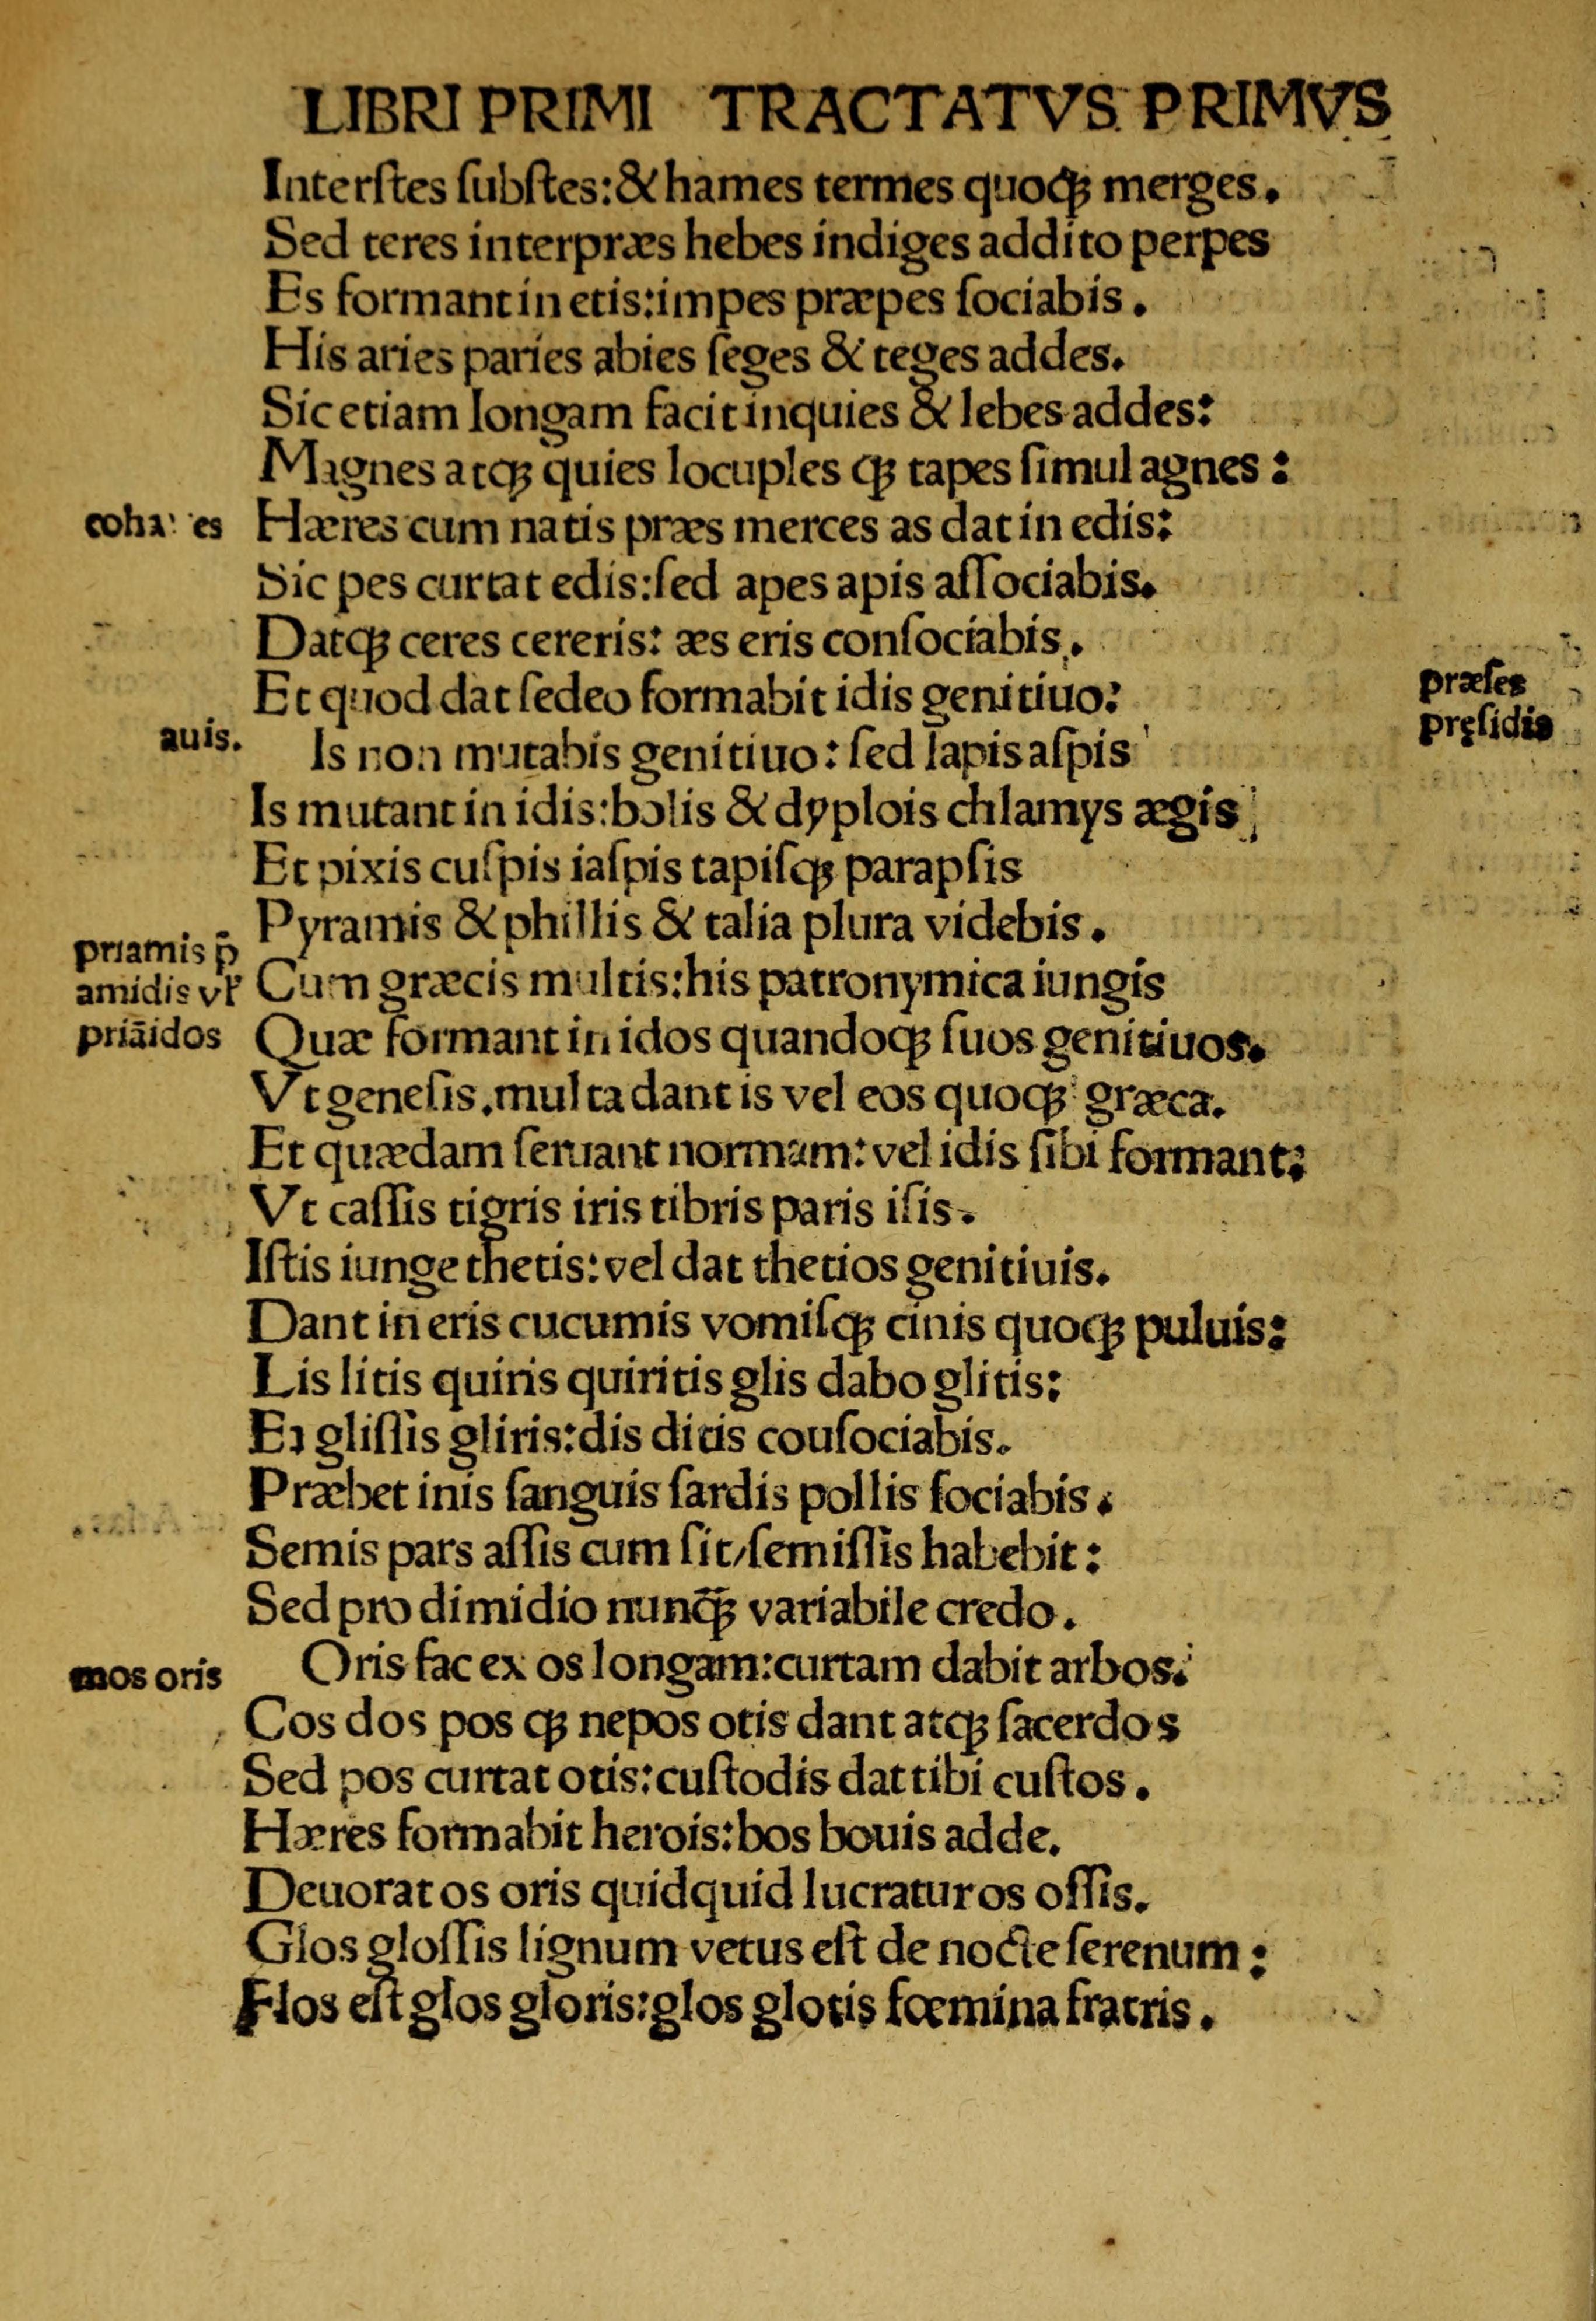 LIBRI PRIMI TRACTATVS PRIMVS
Interſtes ſubſtes:& hames termes quoqꝫ merges.
Sed teres interpræs hebes indiges addito perpes
Es formant in etis:impes præpes ſociabis.
His aries paries abies ſeges & teges addes.
Sic etiam longam facit inquies & lebes addes:
Magnes atqꝫ quies locuples qꝫ tapes ſimul agnes:
Hæres cum natis præs merces as dat in edis:
Sic pes curtat edis:ſed apes apis aſſociabis.
Datqꝫ ceres cereris: æs eris conſociabis.
Et quod dat ſedeo formabit idis genitiuo:
præſes
pręſidis
auis.
Is non mutabis genitiuo: ſed lapis aſpis
Is mutant in idis:bolis & dyplois chlamys ægis
Et pixis cuſpis iaſpis tapiſqꝫ parapſis
Pyramis & phillis & talia plura videbis.
priamis p̄
amidis vĺ
priāidos
Cum græcis multis:his patronymica iungis
Quæ formant in idos quandoqꝫ ſuos genitiuos.
Vt geneſis.multa dant is vel eos quoqꝫ græca.
Et quædam ſeruant normam:vel idis ſibi formant:
Vt caſſis tigris iris tibris paris iſis.
Iſtis iunge thetis:vel dat thetios genitiuis.
Dant in eris cucumis vomiſqꝫ cinis quoqꝫ puluis:
Lis litis quiris quiritis glis dabo glitis:
Et gliſſis gliris:dis ditis couſociabis.
Præbet inis ſanguis ſardis pollis ſociabis.
Semis pars aſſis cum ſit/ſemiſſis habebit:
Sed pro dimidio nunq̄ꝫ variabile credo.
mos oris
Oris fac ex os longam:curtam dabit arbos.
Cos dos pos qꝫ nepos otis dant atqꝫ ſacerdos
Sed pos curtat otis:cuſtodis dat tibi cuſtos.
Hæres formabit herois:bos bouis adde.
Deuorat os oris quidquid lucratur os oſſis.
Glos gloſſis lignum vetus eſt de nocte ſerenum:
Flos eſt glos gloris:glos glotis fœmina fratris.